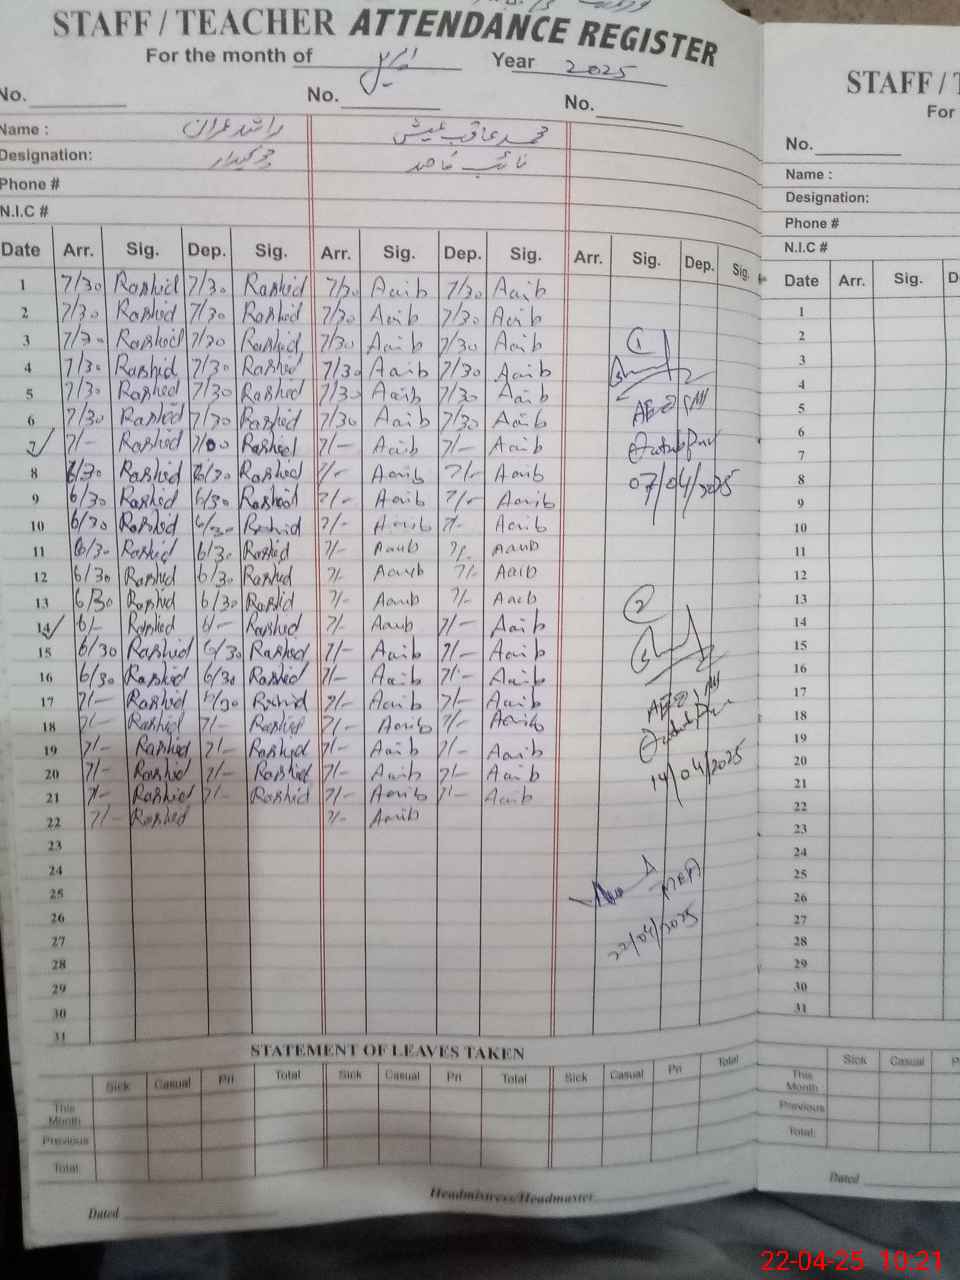 STAFF / TEACHER ATTENDANCE REGISTER
For the month of اپریل Year 2025
No. No. No.
Name : راشد عمران محمد عاقب عیش
Designation: چوکیدار نائب قاصد
Phone #
N.I.C #
Date Arr. Sig. Dep. Sig. Arr. Sig. Dep. Sig. Arr. Sig. Dep. Sig.
1 7/30 Rashid 7/30 Rashid 7/30 Aaib 7/30 Aaib
2 7/30 Rashid 7/30 Rashid 7/30 Aaib 7/30 Aaib
3 7/30 Rashid 7/30 Rashid 7/30 Aaib 7/30 Aaib 1
4 7/30 Rashid 7/30 Rashid 7/30 Aaib 7/30 Aaib
5 7/30 Rashid 7/30 Rashid 7/30 Aaib 7/30 Aaib
6 7/30 Rashid 7/30 Rashid 7/30 Aaib 7/30 Aaib
7 7/- Rashid 7/00 Rashid 7/- Aaib 7/- Aaib
8 6/30 Rashid 6/30 Rashid 7/- Aaib 7/- Aaib 07/04/2025
9 6/30 Rashid 6/30 Rashid 7/- Aaib 7/- Aaib
10 6/30 Rashid 6/30 Rashid 7/- Aaib 7/- Aaib
11 6/30 Rashid 6/30 Rashid 7/- Aaib 7/- Aaib
12 6/30 Rashid 6/30 Rashid 7/- Aaib 7/- Aaib
13 6/30 Rashid 6/30 Rashid 7/- Aaib 7/- Aaib 2
14 6/- Rashid 6/- Rashid 7/- Aaib 7/- Aaib
15 6/30 Rashid 6/30 Rashid 7/- Aaib 7/- Aaib
16 6/30 Rashid 6/30 Rashid 7/- Aaib 7/- Aaib
17 7/- Rashid 7/30 Rashid 7/- Aaib 7/- Aaib
18 7/- Rashid 7/- Rashid 7/- Aaib 7/- Aaib
19 7/- Rashid 7/- Rashid 7/- Aaib 7/- Aaib 14/04/2025
20 7/- Rashid 7/- Rashid 7/- Aaib 7/- Aaib
21 7/- Rashid 7/- Rashid 7/- Aaib 7/- Aaib
22 7/- Rashid 7/- Aaib
23
24
25 MEA
26
27 22/04/2025
28
29
30
31
STATEMENT OF LEAVES TAKEN
Sick Casual Pri Total Sick Casual Pri Total Sick Casual Pri Total
This Month
Previous
Total
Headmistress/Headmaster
Dated
STAFF / T
For
No.
Name :
Designation:
Phone #
N.I.C #
Date Arr. Sig. D
1
2
3
4
5
6
7
8
9
10
11
12
13
14
15
16
17
18
19
20
21
22
23
24
25
26
27
28
29
30
31
Sick Casual P
This Month
Previous
Total:
Dated
22-04-25 10:21